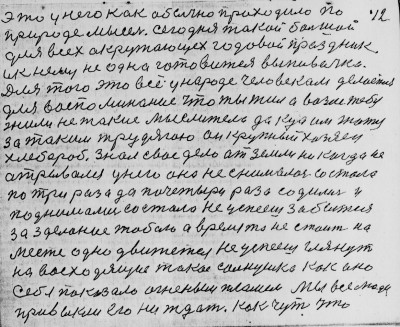 12
это у него как обычно приходило по
природе мысел. Сегодня такой большой
для всех окрутающех годовой праздник
ик нему не одна готовится выпивалка.
Для того это всё у народе человекам делается
для воспоминание что ты жил а возле тебя
жили не такие мыслитель да куда им
за таким трудягаю он крупный хозяен
хлебароб. Знал свае дело ат земли некогда не
атрывался у него оно не снималось состала
по три раза да почетыри раза садилися у
поднимали состало не успеешь забытия
за зделаное тобою а время то не стоит на
месте одно движется не успееш глянут
на восходящие такое солнушка как оно
себя показало огненым пламем мы все люди
привыкли его ни ждат. Как чут что